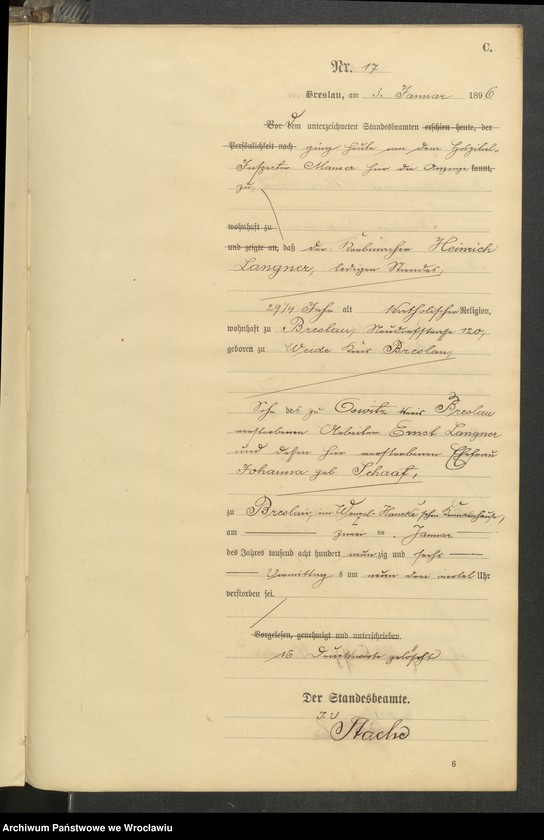 C.
Nr. 17
Breslau, am 3. Januar 1896
Vor dem unterzeichneten Standesbeamten erschien heute, der
Persönlichkeit nach ging heute von dem Hospital-
Inspector hier die Anzeige kannt,
zu,
wohnhaft zu
und zeigte an, daß der Korbmacher Heinrich
Langner, ledigen Standes,
29 1/4 Jahr alt Katholischer Religion,
wohnhaft zu Breslau, Neudorfstrasse 120,
geboren zu Weide Kreis Breslau,
Sohn des zu Oswitz Kreis Breslau
verstorbenen Arbeiter Ernst Langner
und dessen hier verstorbenen Ehefrau
Johanna geb Schaaf,
zu Breslau, im Wenzel-Hancke'schen Krankenhause,
am zwei ten Januar
des Jahres tausend acht hundert neun zig und sechs
Vormittag s um neun drei viertel Uhr
verstorben sei.
Vorgelesen, genehmigt und unterschrieben.
16 Druckworte gelöscht
Der Standesbeamte.
I. V
Stache
6
Archiwum Państwowe we Wrocławiu